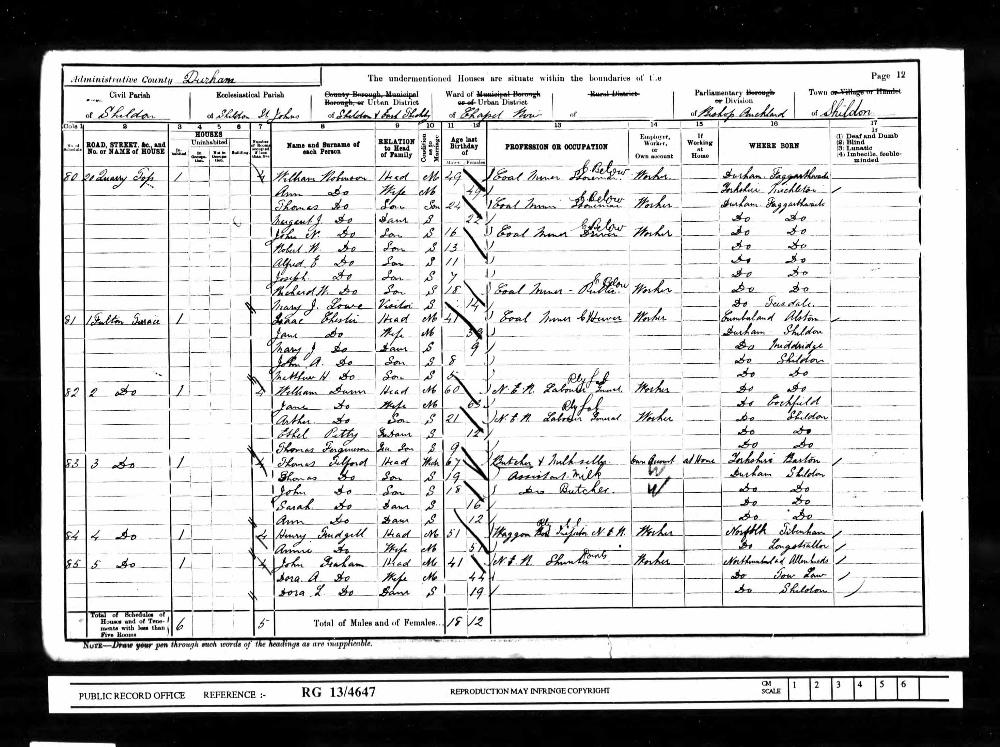 Administrative County Durham The undermentioned Houses are situate within the boundaries of the Page 12
Civil Parish Ecclesiastical Parish County Borough, Municipal Borough, or Urban District Ward of Municipal Borough or of Urban District Rural District Parliamentary Borough or Division Town or Village or Hamlet
of Shildon of Shildon St Johns of Shildon & East Thickley of Chapel Row of of Bishop Auckland of Shildon
Cols 1 2 3 4 5 6 7 8 9 10 11 12 13 14 15 16 17
No. of Schedule ROAD, STREET, &c., and No. or NAME of HOUSE HOUSES Inhabited Uninhabited In Occupation Not in Occupation Building Name and Surname of each Person RELATION to Head of Family Condition as to Marriage Age last Birthday of Males Females PROFESSION OR OCCUPATION Employer, Worker, or Own account If Working at Home WHERE BORN If (1) Deaf and Dumb (2) Blind (3) Lunatic (4) Imbecile, feeble-minded
80 20 Quarry Top 1 4 William Robinson Head M 49 Coal Miner Below Worker Durham
Ann Do Wife M 49 Yorkshire
Thomas Do Son 24 Coal Miner Below Worker Durham
Margaret J. Do Daur S 22 Do Do
John N. Do Son S 16 Coal Miner Driver Below Worker Do Do
Robert W. Do Son S 13 Do Do
Alfred E Do Son S 11 Do Do
Joseph Do Son S 7 Do Do
Richard W. Do Son S 18 Coal Miner - Putter Below Worker Do Do
Mary J. Lowe Visitor S 14 Do Teesdale
81 1 Fulton Terrace 1 Isaac Head M 41 Coal Miner Hewer Worker Cumberland Alston
Jane Do Wife M Durham Shildon
Mary J Do Daur S 9 Do Middridge
John A Do Son S 8 Do Shildon
Matthew H Do Son S 5 Do Do
82 2 Do 1 4 William Dunn Head M 60 N.E.R. Labourer Worker Do Do
Jane Do Wife M 63 Do Cockfield
Arthur Do Son S 21 N.E.R Labourer Worker Do Shildon
Ethel Petty S 12 Do Do
Thomas Fergusson Gr. Son S 9 Do Do
83 3 Do 1 4 Thomas Tilford Head 67 Butcher & Milk seller Own Account at Home Yorkshire Barton
Thomas Do Son S 19 Assistant Milk W Durham Shildon
John Do Son S 18 Do Butcher W Do Do
Sarah Do Daur S 16 Do Do
Ann Do Daur S 12 Do Do
84 4 Do 1 4 Henry Gudgill Head M 51 Waggon Inspector N.E.R. Worker Norfolk Tibenham
Annie Do Wife M 51 Do Longstratton
85 5 Do 1 4 John Graham Head M 41 N.E.R Shunter Worker Northumberland Allenheads
Dora A Do Wife M 44 Do Tow Law
Dora L Do Daur S 19 Do Shildon
Total of Schedules of Houses and of Tenements with less than Five Rooms 6 5 Total of Males and of Females... 18 12
NOTE—Draw your pen through such words of the headings as are inapplicable.
PUBLIC RECORD OFFICE REFERENCE :- RG 13/4647 REPRODUCTION MAY INFRINGE COPYRIGHT CM SCALE 1 2 3 4 5 6